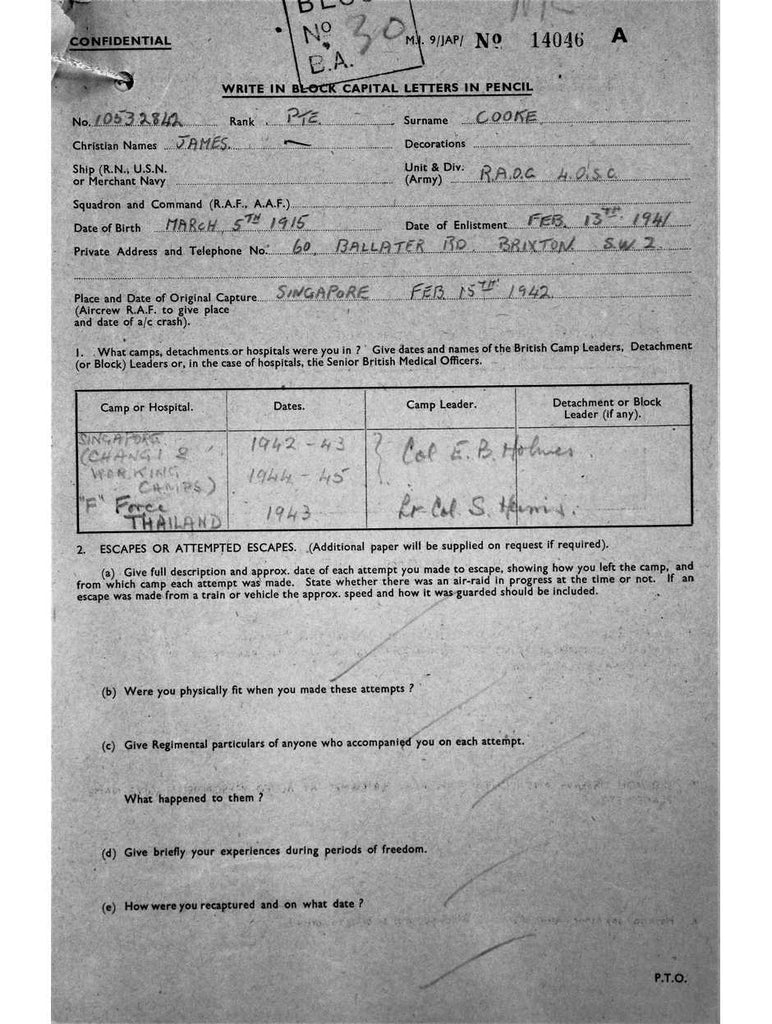 CONFIDENTIAL
No
30
B.A.
M.I. 9/JAP/ No 14046 A
WRITE IN BLOCK CAPITAL LETTERS IN PENCIL
No. 10532842 Rank PTE Surname COOKE
Christian Names JAMES. — Decorations
Ship (R.N., U.S.N. or Merchant Navy
Unit & Div. (Army) R.A.O.C 4.O.S.C.
Squadron and Command (R.A.F., A.A.F.)
Date of Birth MARCH 5TH 1915 Date of Enlistment FEB. 13TH 1941
Private Address and Telephone No. 60, BALLATER RD. BRIXTON S.W 2.
Place and Date of Original Capture SINGAPORE FEB 15TH 1942
(Aircrew R.A.F. to give place
and date of a/c crash).
1. What camps, detachments or hospitals were you in ? Give dates and names of the British Camp Leaders, Detachment
(or Block) Leaders or, in the case of hospitals, the Senior British Medical Officers.
Camp or Hospital. Dates. Camp Leader. Detachment or Block Leader (if any).
SINGAPORE 1942-43
(CHANGI & Col E. B. Holmes.
WORKING 1944-45
CAMPS)
"F" Force 1943 Lt Col S. Harris.
THAILAND
2. ESCAPES OR ATTEMPTED ESCAPES. (Additional paper will be supplied on request if required).
(a) Give full description and approx. date of each attempt you made to escape, showing how you left the camp, and
from which camp each attempt was made. State whether there was an air-raid in progress at the time or not. If an
escape was made from a train or vehicle the approx. speed and how it was guarded should be included.
(b) Were you physically fit when you made these attempts ?
(c) Give Regimental particulars of anyone who accompanied you on each attempt.
What happened to them ?
(d) Give briefly your experiences during periods of freedom.
(e) How were you recaptured and on what date ?
P.T.O.